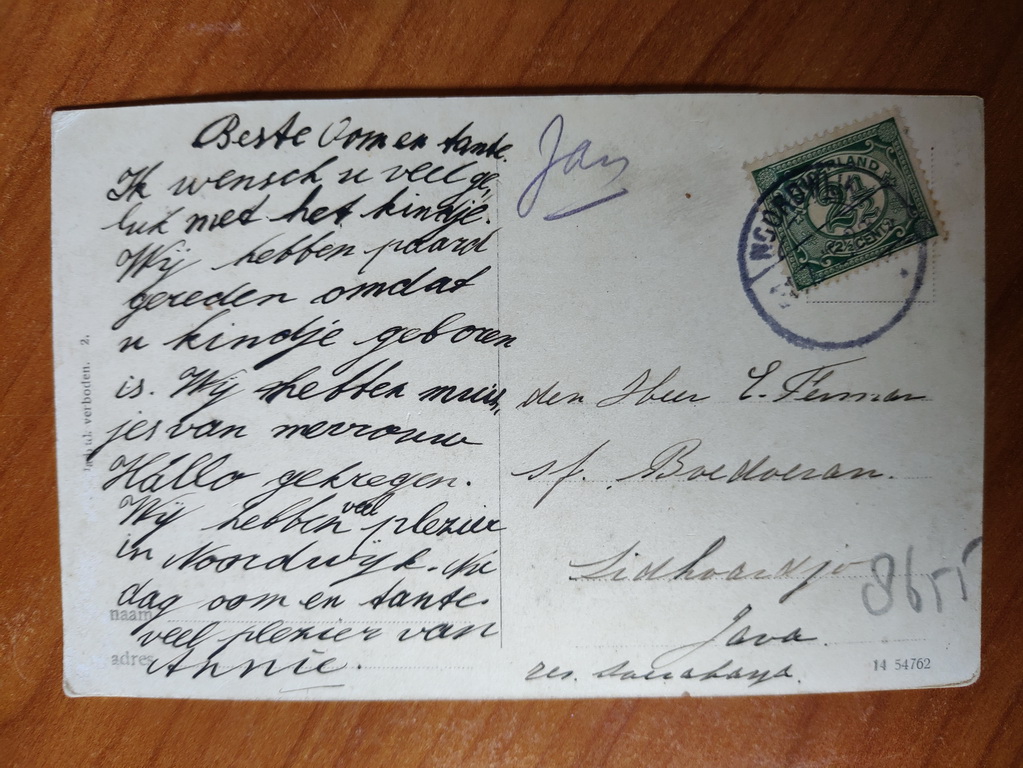 Beste Oom en tante.
Ik wensch u veel ge,
luk met het kindje.
Wij hebben paard
gereden omdat
u kindje geboren
is. Wij hebben muis,
jes van mevrouw
Hallo gekregen.
Wij hebben veel plezier
in Noordwijk. Nu
dag oom en tante.
veel plezier van
Annie.
naam
adres
verboden. 2.
Jan
NOORDWIJ
2½
(2½ CENT)
den Heer C. Ferman
sf. Boedoeran.
Sidhoardjo
Java.
res. Soerabaya.
8655
14 54762